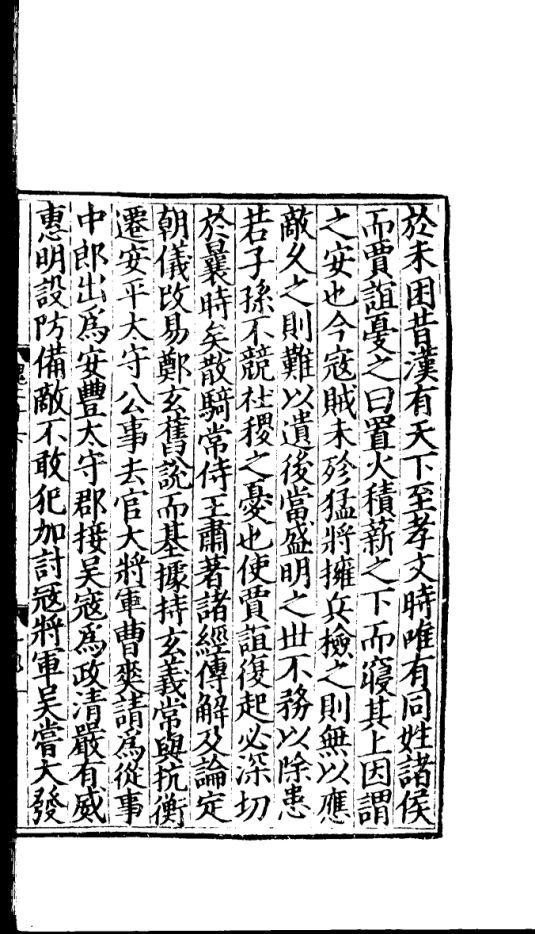 於未困昔漢有天下至孝文時唯有同姓諸侯
而賈誼憂之曰置火積薪之下而寢其上因謂
之安也今寇賊未殄猛將擁兵檢之則無以應
敵久之則難以遺後當盛明之世不務以除患
若子孫不競社稷之憂也使賈誼復起必深切
於曩時矣散騎常侍王肅著諸經傳解及論定
朝儀改易鄭玄舊說而基據持玄義常與抗衡
遷安平太守公事去官大將軍曹爽請為從事
中郎出為安豐太守郡接吳寇為政清嚴有威
惠明設防備敵不敢犯加討寇將軍吳嘗大發